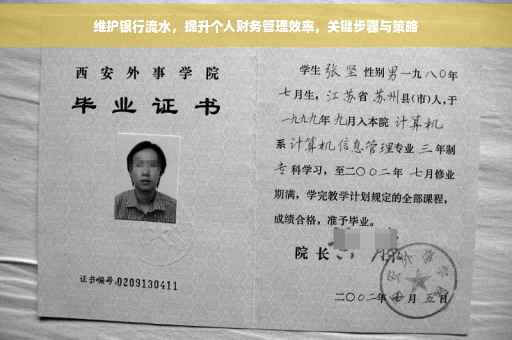 维护银行流水，提升个人财务管理效率，关键步骤与策略
西安外事学院
毕业证书
证书编号:0209130411
学生 张坚 性别 男 一九八〇年
七月生，江苏省 苏州县(市)人，于
一九九九年 九月入本院 计算机
系 计算机信息管理专业 三年制
专科学习，至二〇〇二年 七月修业
期满，学完教学计划规定的全部课程，
成绩合格，准予毕业。
院长
二〇〇二年 月 五日